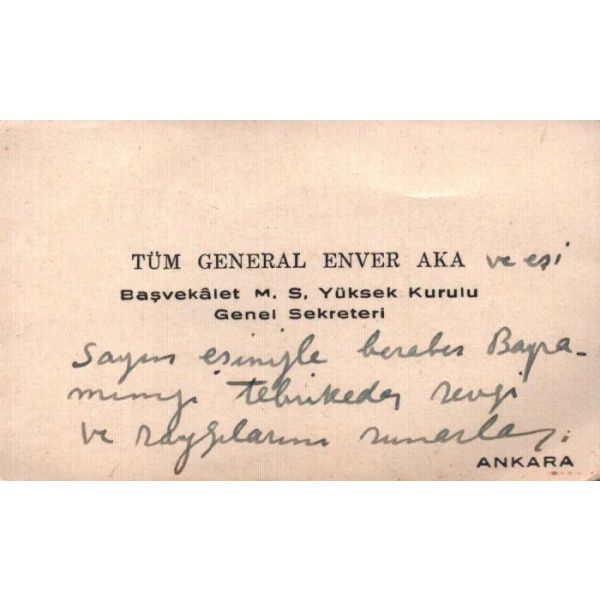 TÜM GENERAL ENVER AKA ve eşi
Başvekâlet M. S. Yüksek Kurulu
Genel Sekreteri
Sayın eşinizle beraber Bayra-
mınızı tebrikeder sevgi
ve saygılarını sunarlar.
ANKARA